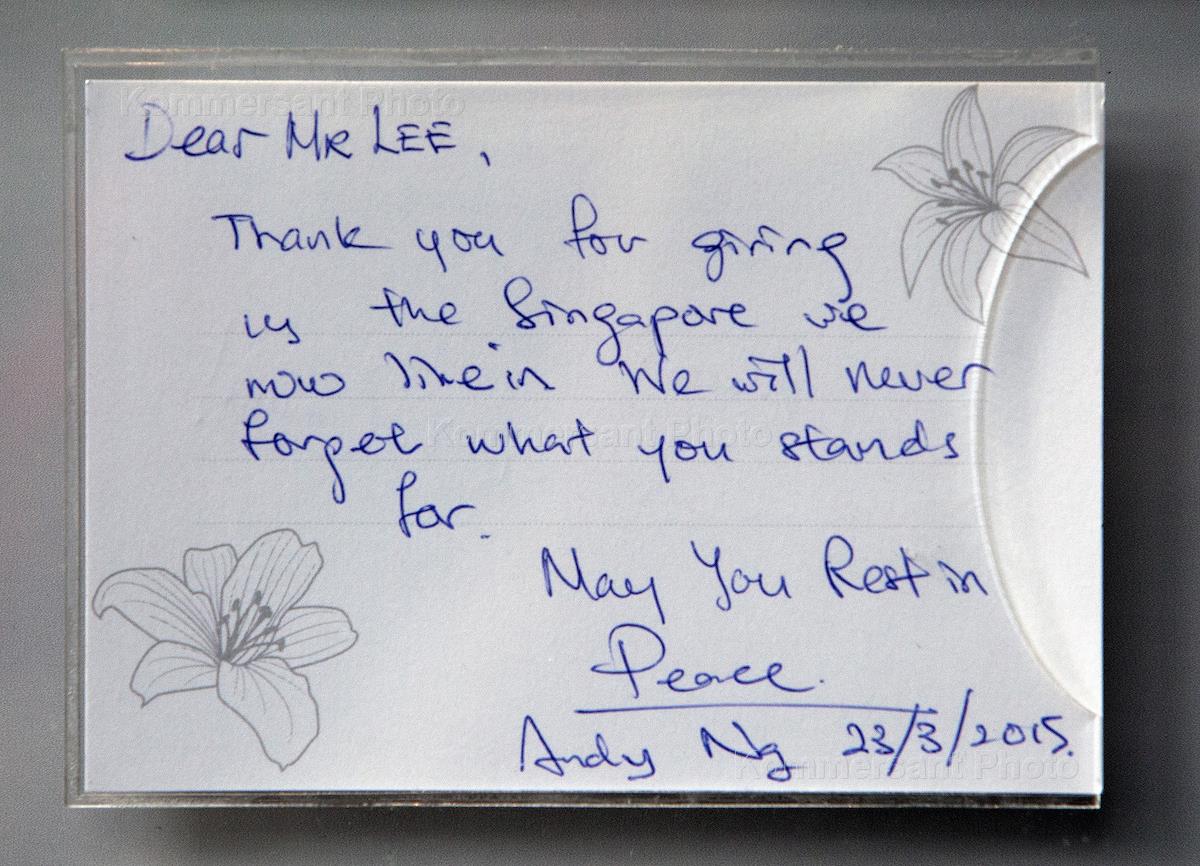 Kommersant Photo
Dear MR LEE,
Thank you for giving
us the Singapore we
now live in We will never
forget what you stands
for.
Kommersant Photo
May You Rest in
Peace.
Andy Ng 23/3/2015.
Kommersant Photo